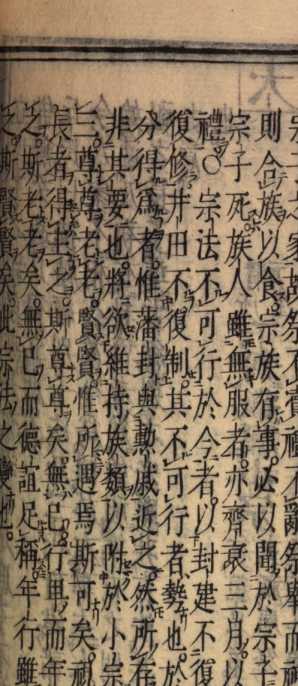 宗子之家故祭不賓禮不辭祭舉而祔
則合族以食宗族有事必以聞於宗子
宗子死族人雖無服者亦齊衰三月以
禮○宗法不可行於今者以封建不復
復修井田不復制其不可行者勢也於
分得爲者惟藩封與勲戚近之然所存
非其要也將欲維持族類以附於小宗
三尊尊老老賢賢惟所遇焉斯可矣祔
長者得主之斯尊尊矣無已行卑而年
之斯老老矣無已而德誼足稱年行雖
之斯賢賢矣此宗法之變也